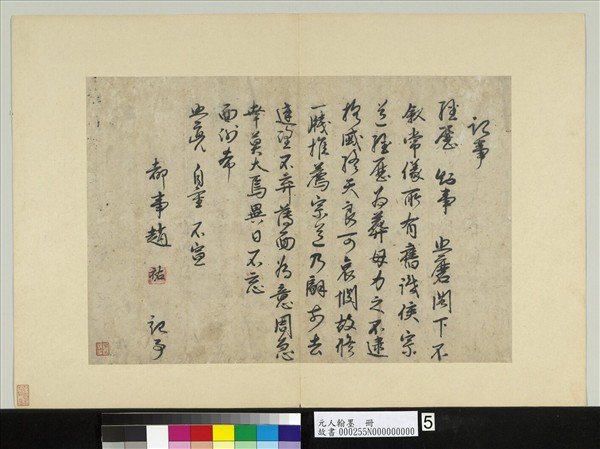 記事
經歷 知事 照磨閣下不
敘常儀所有舊識侯宗
道經歷為葬母力之不逮
感終天良可哀憫故修
一牋推薦宗道乃辭前去
達望不弃舊面為意周急
幸莫大焉異日不忘
面謝希
照亮自重不宣
都事趙 記事
元人翰墨 冊
故書 000255N000000000
5